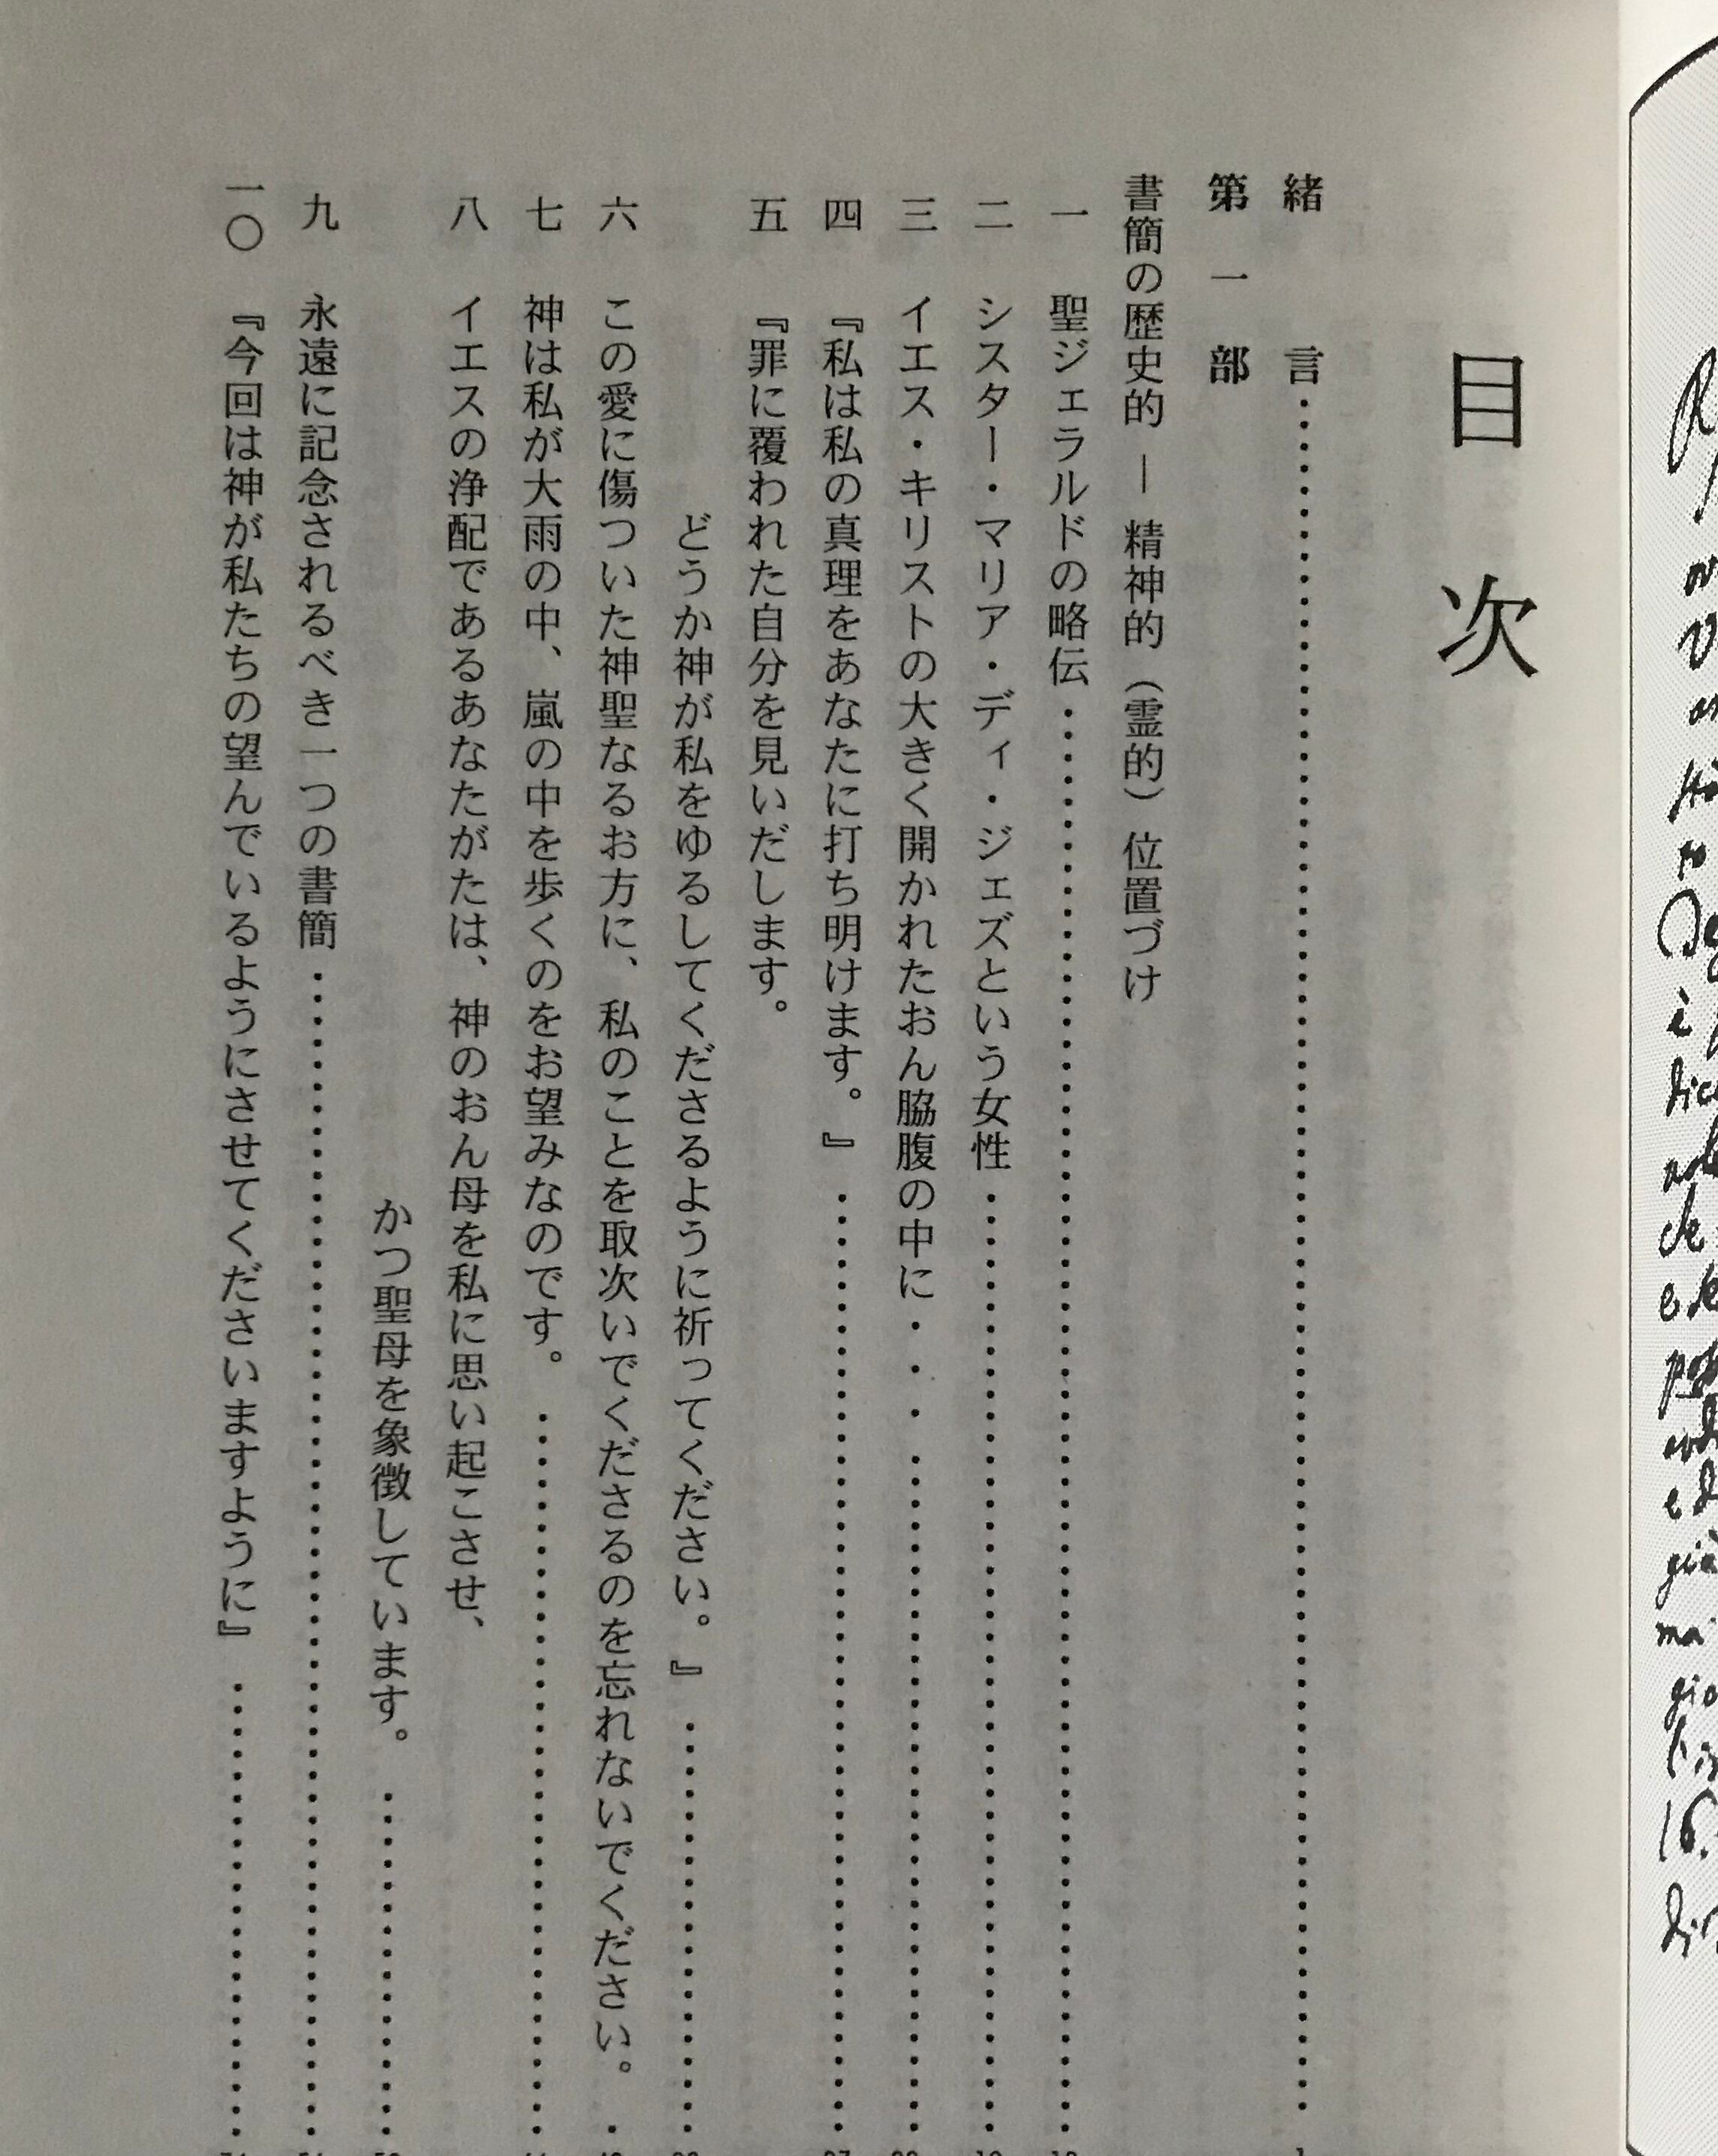 目次
緒言
第一部
書簡の歴史的 ― 精神的（霊的）位置づけ
一 聖ジェラルドの略伝
二 シスター・マリア・ディ・ジェズという女性
三 イエス・キリストの大きく開かれたおん脇腹の中に・・・
四 『私は私の真理をあなたに打ち明けます。』
五 『罪に覆われた自分を見いだします。
どうか神が私をゆるしてくださるように祈ってください。』
六 この愛に傷ついた神聖なるお方に、私のことを取次いでくださるのを忘れないでください。
七 神は私が大雨の中、嵐の中を歩くのをお望みなのです。
八 イエスの浄配であるあなたがたは、神のおん母を私に思い起こさせ、
かつ聖母を象徴しています。
九 永遠に記念されるべき一つの書簡
一〇 『今回は神が私たちの望んでいるようにさせてくださいますように』